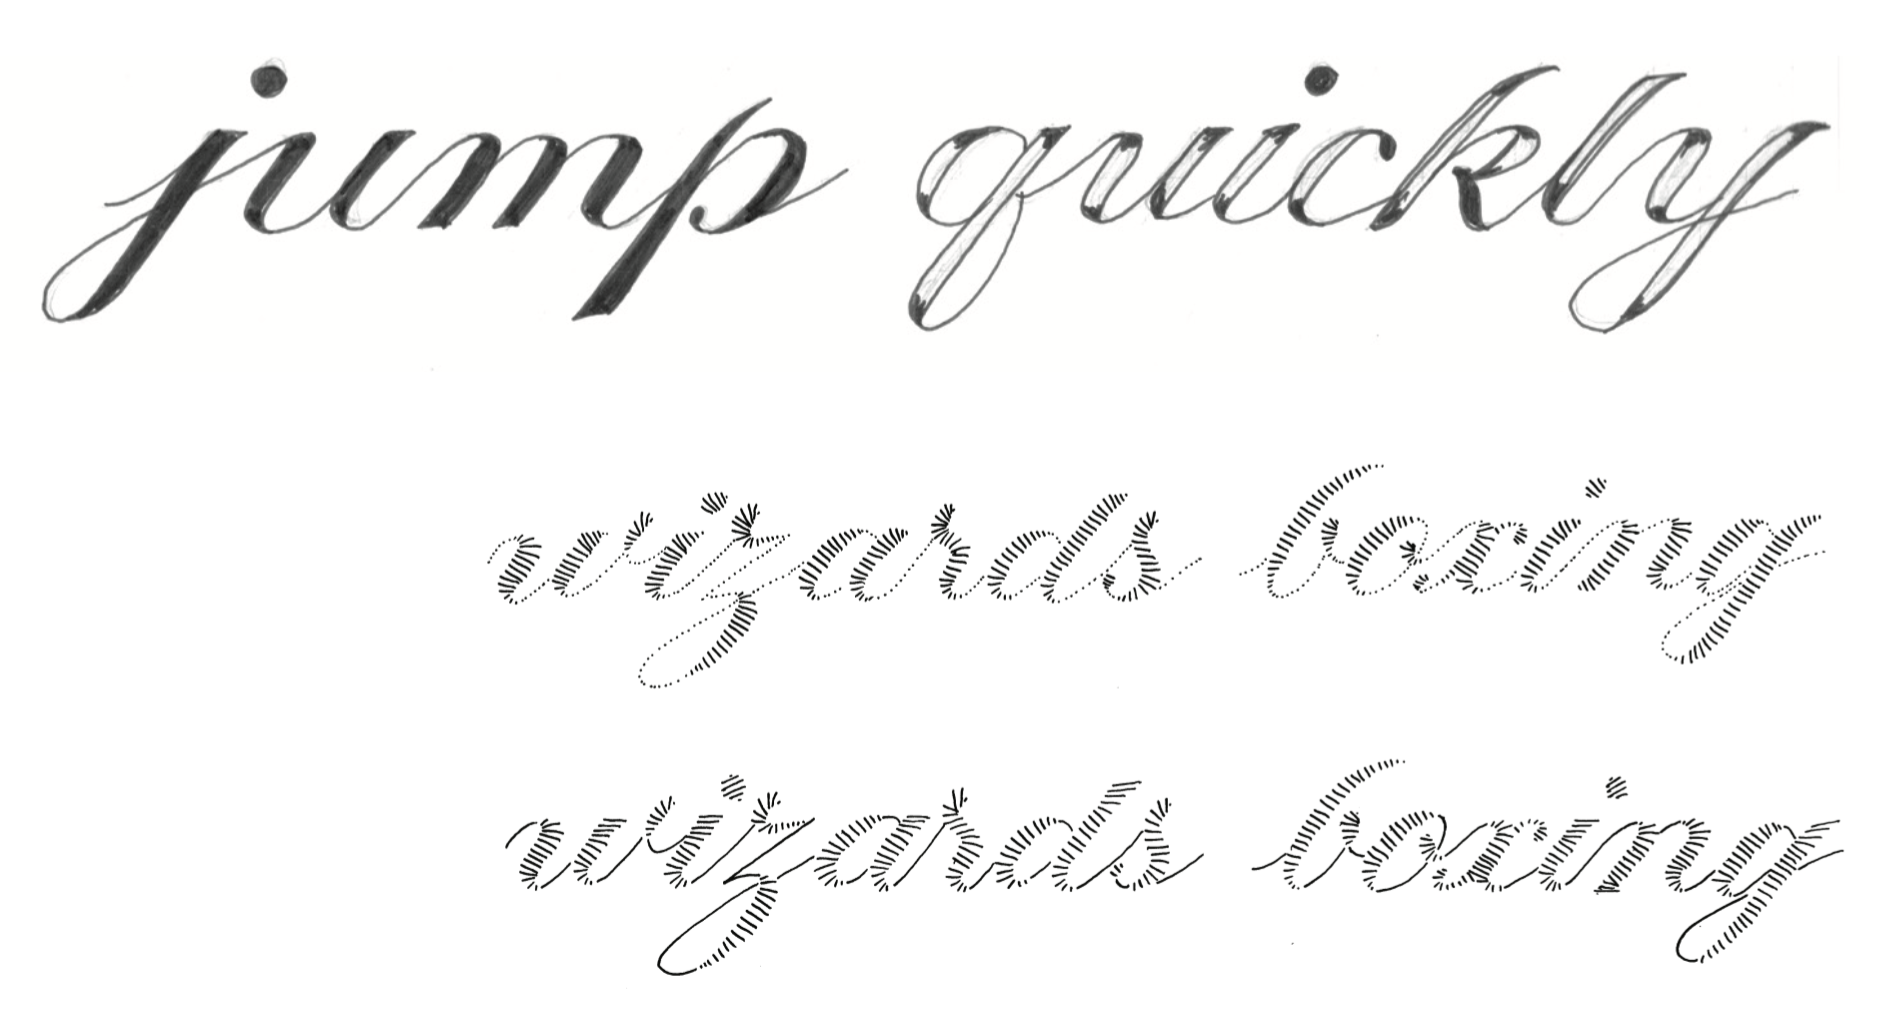 jump quickly
wizards boxing
wizards boxing